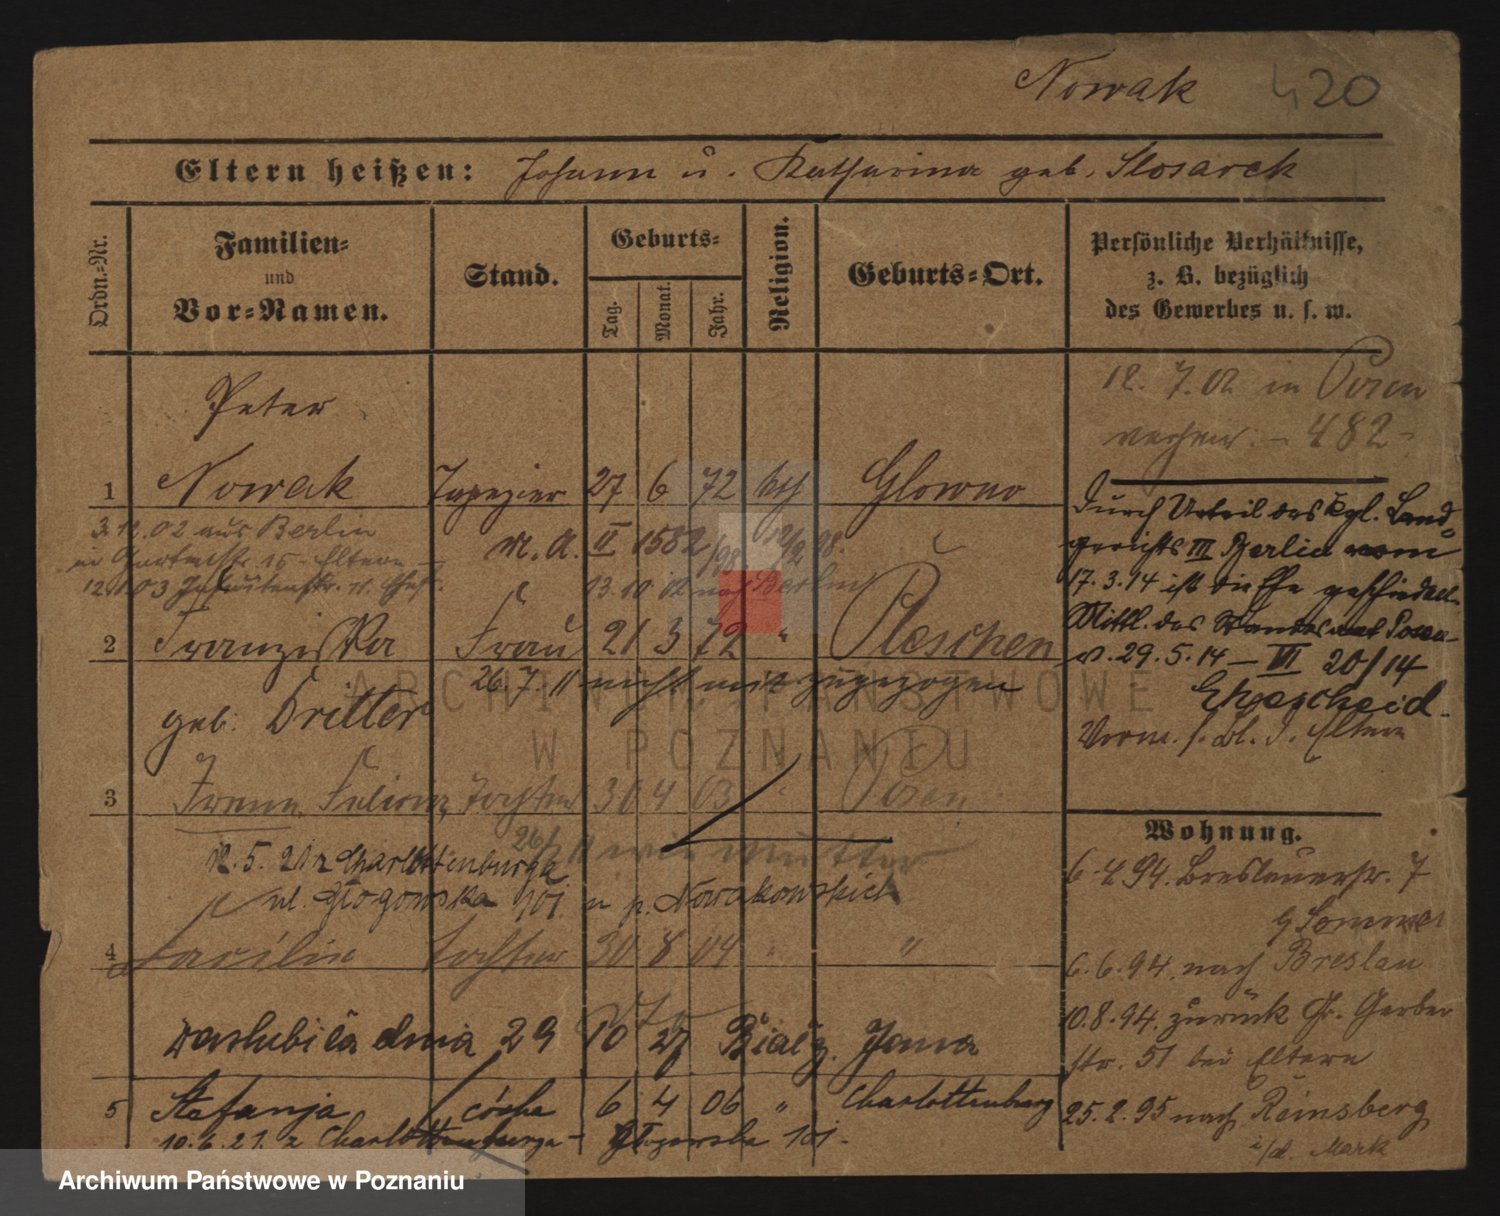 Nowak 420
Eltern heißen: Johann u. Katharina geb. Slosarek
Ordn.=Nr.
Familien=
und
Vor=Namen.
Stand.
Geburts=
Tag.
Monat.
Jahr.
Religion.
Geburts=Ort.
Persönliche Verhältnisse,
z. B. bezüglich
des Gewerbes u. s. w.
Peter
1 Nowak Tapezier 27 6 72 kth Glowno
3.11.02 aus Berlin
15 Eltern
M. A. II 1582/98 12/9 98.
13.10.02 nach Berlin
2 Franziska Frau 21 3 72 " Pleschen
26.7.11 nicht mit zugezogen
geb. Dritter
3 Irene Tochter 30 4 03 " Posen
26/7 11 wie Mutter
12.5.21 z Charlottenburga
ul. Glogowska 101 u p. Nowakowskich
4 Cacilie Tochter 30 8 04 " "
zaslubiła dnia 29 10 27 Jana
5 Stefanja córka 6 4 06 " Charlottenburg
10.6.21 z Charlottenburga - Glogowska 101.
12.7.02 in Posen
- 482 -
Durch Urteil des Kgl. Land=
gerichts III Berlin vom
17.3.14 ist die Ehe geschieden.
Mittl. des Standesamt Posen
v. 29.5.14 - VI 20/14
Ehescheid.
Vorm. s. Bl. d. Eltern
Wohnung.
6.4.94. Breslauerstr. 7
b Sommer
6.6.94. nach Breslau
10.8.94. zurück Gr. Gerber
str. 51 bei Eltern
25.2.95 nach Reinsberg
i/d. Mark
ARCHIWUM PAŃSTWOWE
W POZNANIU
Archiwum Państwowe w Poznaniu